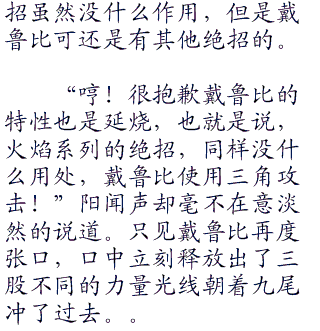 招虽然没什么作用，但是戴
鲁比可还是有其他绝招的。
“哼！很抱歉戴鲁比的
特性也是延烧，也就是说，
火焰系列的绝招，同样没什
么用处，戴鲁比使用三角攻
击！”阳闻声却毫不在意淡
然的说道。只见戴鲁比再度
张口，口中立刻释放出了三
股不同的力量光线朝着九尾
冲了过去。。